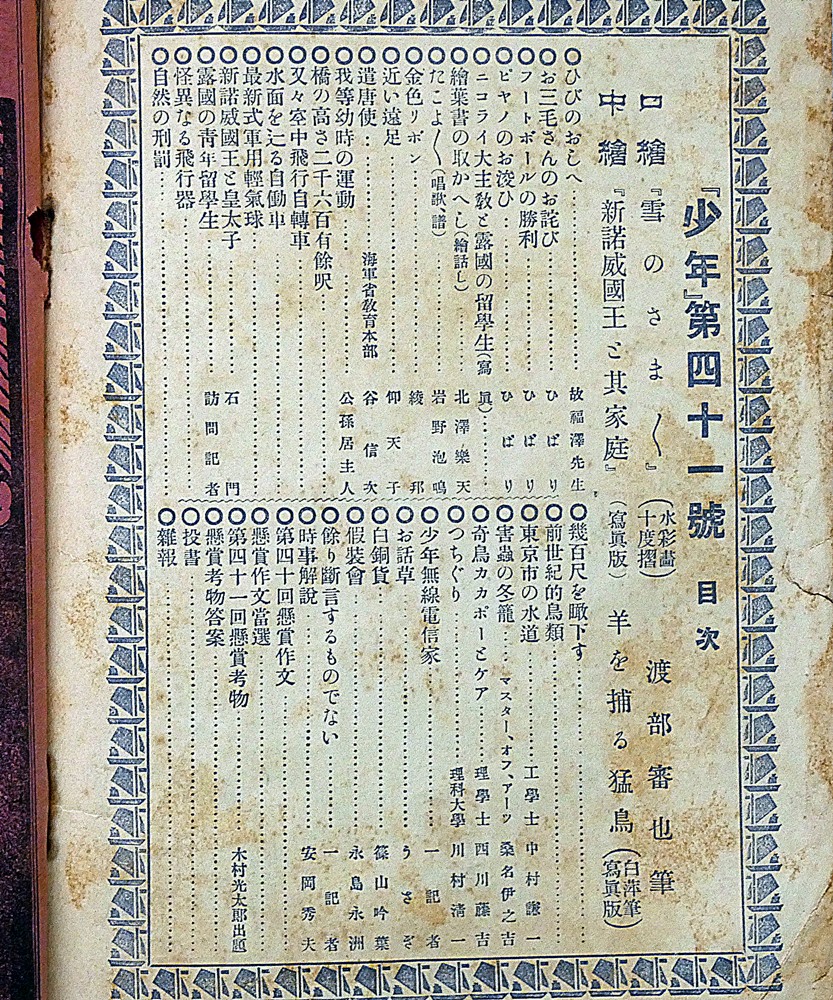 『少年』第四十一號 目次
口繪 『雪のさま〲』 (水彩畵十度摺) 渡部審也筆
中繪 『新諾威國王と其家庭』 (寫眞版) 羊を捕る猛鳥 (白萍筆寫眞版)
◎ひびのおしへ……故福澤先生
◎お三毛さんのお詫び……ひばり
◎フートボールの勝利……ひばり
◎ピヤノのお浚ひ……ひばり
◎ニコライ大主敎と露國の留學生(寫眞)……
◎繪葉書の取かへし(繪話し)……北澤樂天
◎たこよ〱(唱歌譜)……岩野泡鳴
◎金色リボン……綾邦
◎近い遠足……仰天子
◎遣唐使……海軍省敎育本部 谷信次
◎我等幼時の運動……公孫居主人
◎橋の高さ二千六百有餘呎……
◎又々空中飛行自轉車……
◎水面を辷る自働車……
◎最新式軍用輕氣球……
◎新諾威國王と皇太子……石門
◎露國の靑年留學生……訪問記者
◎怪異なる飛行器……
◎自然の刑罰……
◎幾百尺を瞰下す……
◎前世紀的鳥類……
◎東京市の水道……工學士 中村謙一
◎害蟲の冬籠……マスター、オフ、アーツ 桑名伊之吉
◎奇鳥カカポーとケア……理學士 西川藤吉
◎つちぐり……理科大學 川村淸一
◎少年無線電信家……一記者
◎お話草……うさぎ
◎白銅貨……篠山吟葉
◎假裝會……永島永洲
◎餘り斷言するものでない……一記者
◎時事解說……安岡秀夫
◎第四十回懸賞作文……
◎懸賞作文當選……
◎第四十一回懸賞考物……木村光太郎出題
◎懸賞考物答案……
◎投書……
◎雜報……